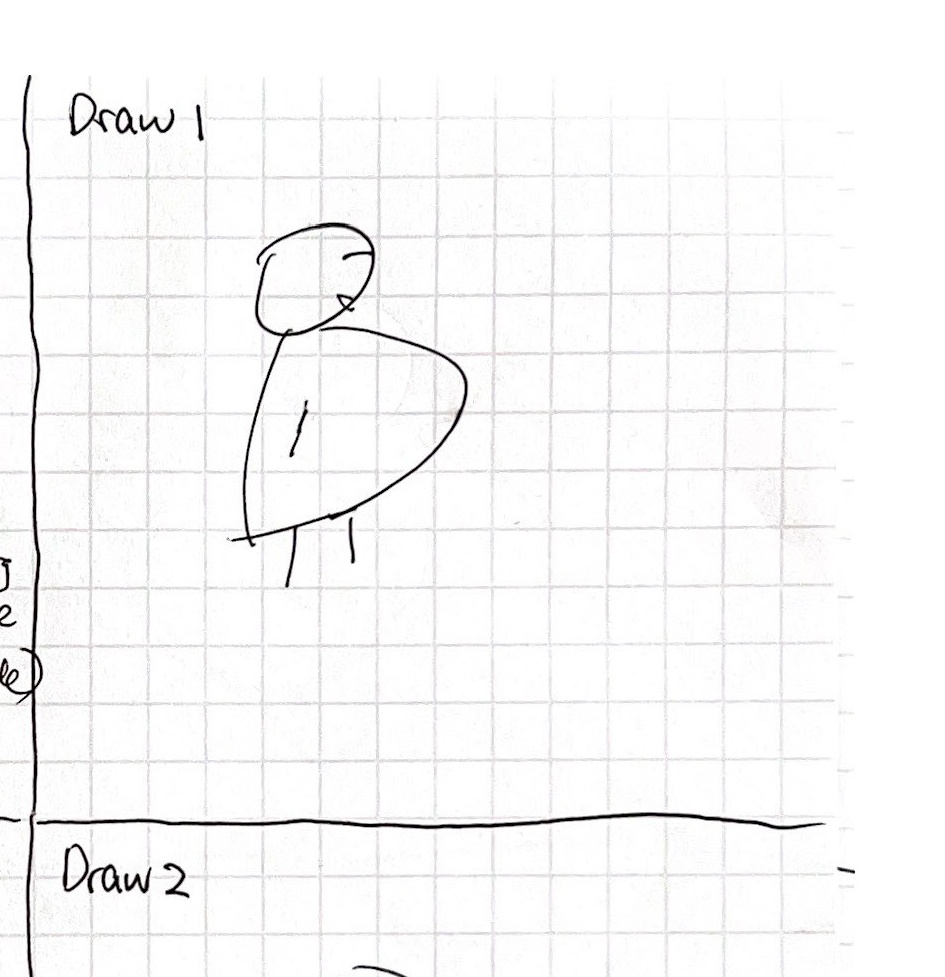 Draw 1
Draw 2